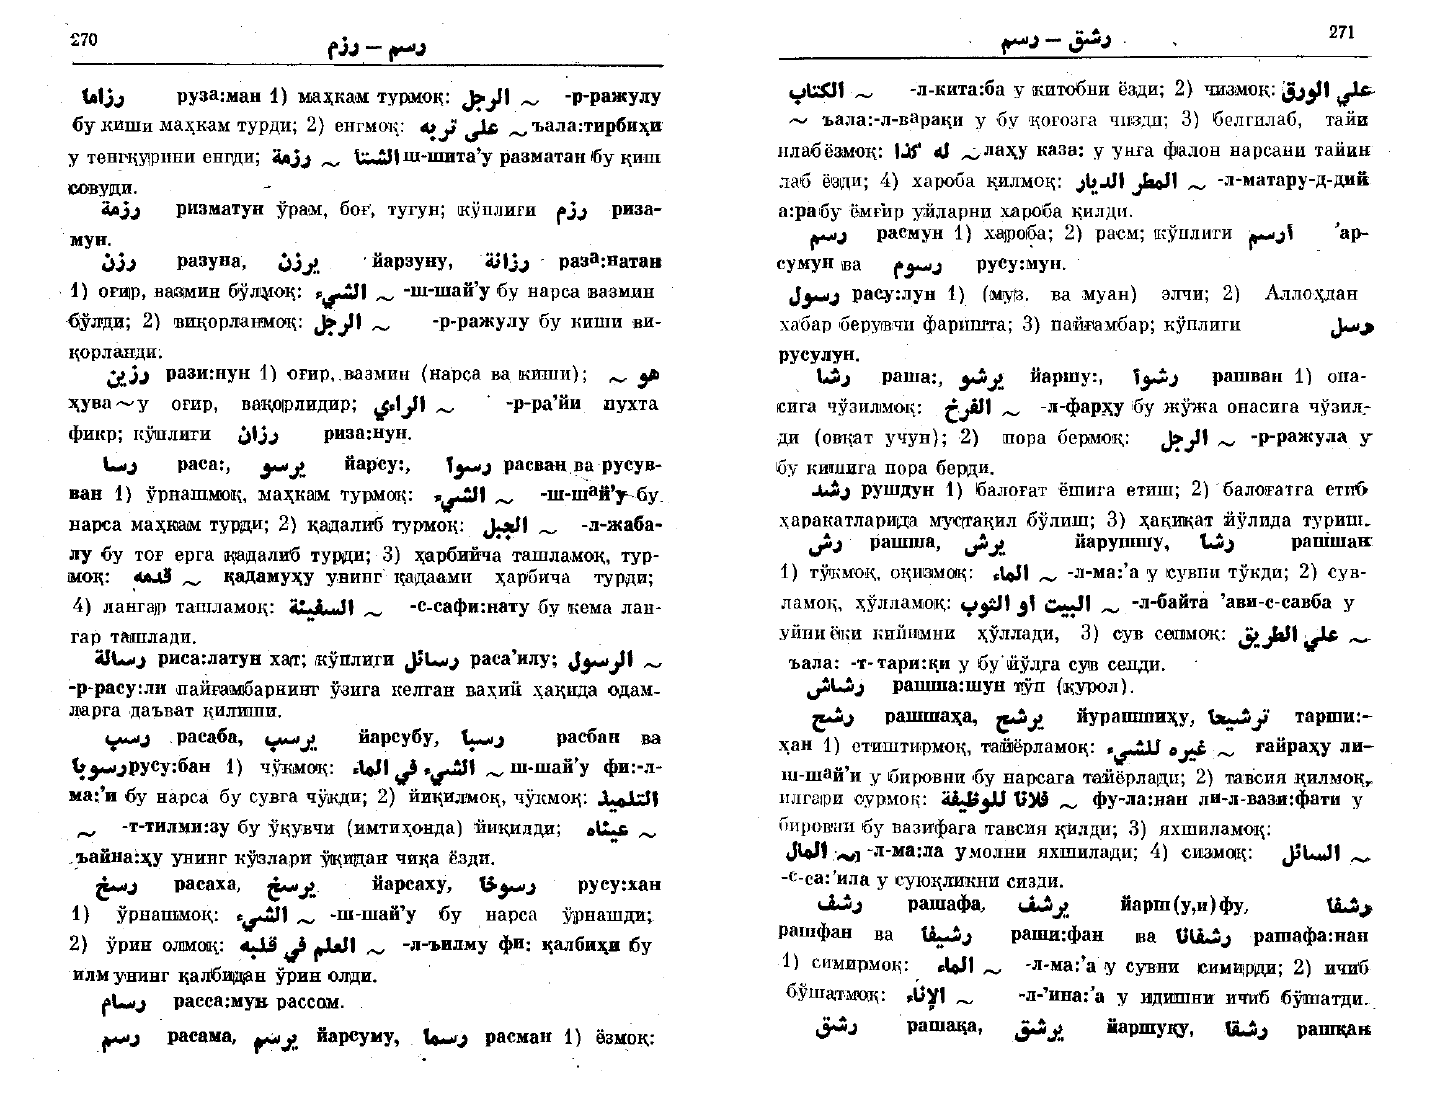 270
رسم — رزم
رزاما руза:ман 1) маҳкам турмоқ: الرجل ~ -р-ражулу
бу киши маҳкам турди; 2) енгмоқ: على تربه ~ ъала:тирбиҳи
у тенгқурини енгди; رزمة ~ الشتا ш-шита’у разматан бу қиш
совуди.
رزمة ризматун ўрам, боғ, тугун; кўплиги رزم риза-
мун.
رزن разуна, يرزن йарзуну, رزانة раза:натан
1) оғир, вазмин бўлмоқ: الشيء ~ -ш-шай’у бу нарса вазмин
бўлди; 2) виқорланмоқ: الرجل ~ -р-ражулу бу киши ви-
қорланди.
رزين рази:нун 1) оғир, вазмин (нарса ва киши); ~ هو
ҳува~у оғир, вақорлидир; الراي ~ -р-ра’йи пухта
фикр; кўплиги رزان риза:нун.
رسا раса:, يرسو йарсу:, رسوا расван ва русув-
ван 1) ўрнашмоқ, маҳкам турмоқ: الشيء ~ -ш-шай’у бу
нарса маҳкам турди; 2) қадалиб турмоқ: الجبل ~ -л-жаба-
лу бу тоғ ерга қадалиб турди; 3) ҳарбийча ташламоқ, тур-
моқ: قدمه ~ қадамуҳу унинг қадаами ҳарбича турди;
4) лангар ташламоқ: السفينة ~ -с-сафи:нату бу кема лан-
гар ташлади.
رسالة риса:латун хат; кўплиги رسائل раса’илу; الرسول ~
-р-расу:ли пайғамбарнинг ўзига келган ваҳий ҳақида одам-
ларга даъват қилиши.
رسب расаба, يرسب йарсубу, رسبا расбан ва
رسوبا русу:бан 1) чўкмоқ: الشيء في الماء ~ ш-шай’у фи:-л-
ма:’и бу нарса бу сувга чўкди; 2) йиқилмоқ, чўкмоқ: التلميذ
~ -т-тилми:зу бу ўқувчи (имтиҳонда) йиқилди; عيناه ~
ъайна:ҳу унинг кўзлари ўқидан чиқа ёзди.
رسخ расаха, يرسخ йарсаху, رسوخا русу:хан
1) ўрнашмоқ: الشيء ~ -ш-шай’у бу нарса ўрнашди;
2) ўрин олмоқ: العلم في قلبه ~ -л-ъилму фи: қалбиҳи бу
илм унинг қалбидан ўрин олди.
رسام расса:мун рассом.
رسم расама, يرسم йарсуму, رسما расман 1) ёзмоқ:
271
رشق — رسم
الكتاب ~ -л-кита:ба у китобни ёзди; 2) чизмоқ: على الورق
~ ъала:-л-варақи у бу қоғозга чизди; 3) белгилаб, тайи
илаб ёзмоқ: له كذا ~ лаҳу каза: у унга фалон нарсани тайин
лаб ёзди; 4) хароба қилмоқ: المطر الديار ~ -л-матару-д-дий
а:ра бу ёмғир уйларни хароба қилди.
رسم расмун 1) хароба; 2) расм; кўплиги ارسم ’ар-
сумун ва رسوم русу:мун.
رسول расу:лун 1) (муз. ва муан) элчи; 2) Аллоҳдан
хабар берувчи фаришта; 3) пайғамбар; кўплиги رسل
русулун.
رشا раша:, يرشو йаршу:, رشوا рашван 1) она-
сига чўзилмоқ: الفرخ ~ -л-фарҳу бу жўжа онасига чўзил-
ди (овқат учун); 2) пора бермоқ: الرجل ~ -р-ражула у
бу кишига пора берди.
رشد рушдун 1) балоғат ёшига етиш; 2) балоғатга етиб
ҳаракатларида мустақил бўлиш; 3) ҳақиқат йўлида туриш.
رش рашша, يرش йарушшу, رشا рашшан
1) тўкмоқ, оқизмоқ: الماء ~ -л-ма:’а у сувни тўкди; 2) сув-
ламоқ, ҳўлламоқ: البيت او الثوب ~ -л-байта ’ави-с-савба у
уйни ёки кийимни ҳўллади, 3) сув сепмоқ: على الطريق ~
ъала: -т-тари:қи у бу йўлга сув сепди.
رشاش рашша:шун тўп (қурол).
رشح рашшаҳа, يرشح йурашшиҳу, ترشيحا тарши:-
ҳан 1) етиштирмоқ, тайёрламоқ: غيره للشيء ~ ғайраҳу ли-
ш-шай’и у бировни бу нарсага тайёрлади; 2) тавсия қилмоқ,
илгари сурмоқ: فلانا للوظيفة ~ фу-ла:нан ли-л-вази:фати у
бировни бу вазифага тавсия қилди; 3) яхшиламоқ:
المال -л-ма:ла у молни яхшилади; 4) сизмоқ: السائل ~
-с-са:’ила у суюқликни сизди.
رشف рашафа, يرشف йарш(у,и)фу, رشفا
рашфан ва رشيفا раши:фан ва رشفانا рашафа:нан
1) симирмоқ: الماء ~ -л-ма:’а у сувни симирди; 2) ичиб
бўшатмоқ: الاناء ~ -л-’ина:’а у идишни ичиб бўшатди.
رشق рашақа, يرشق йаршуқу, رشقا рашқан